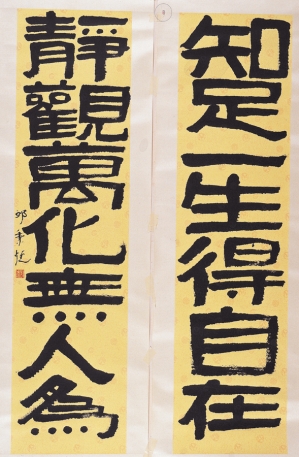 知足一生得自在
靜觀萬化無人為
鄧季